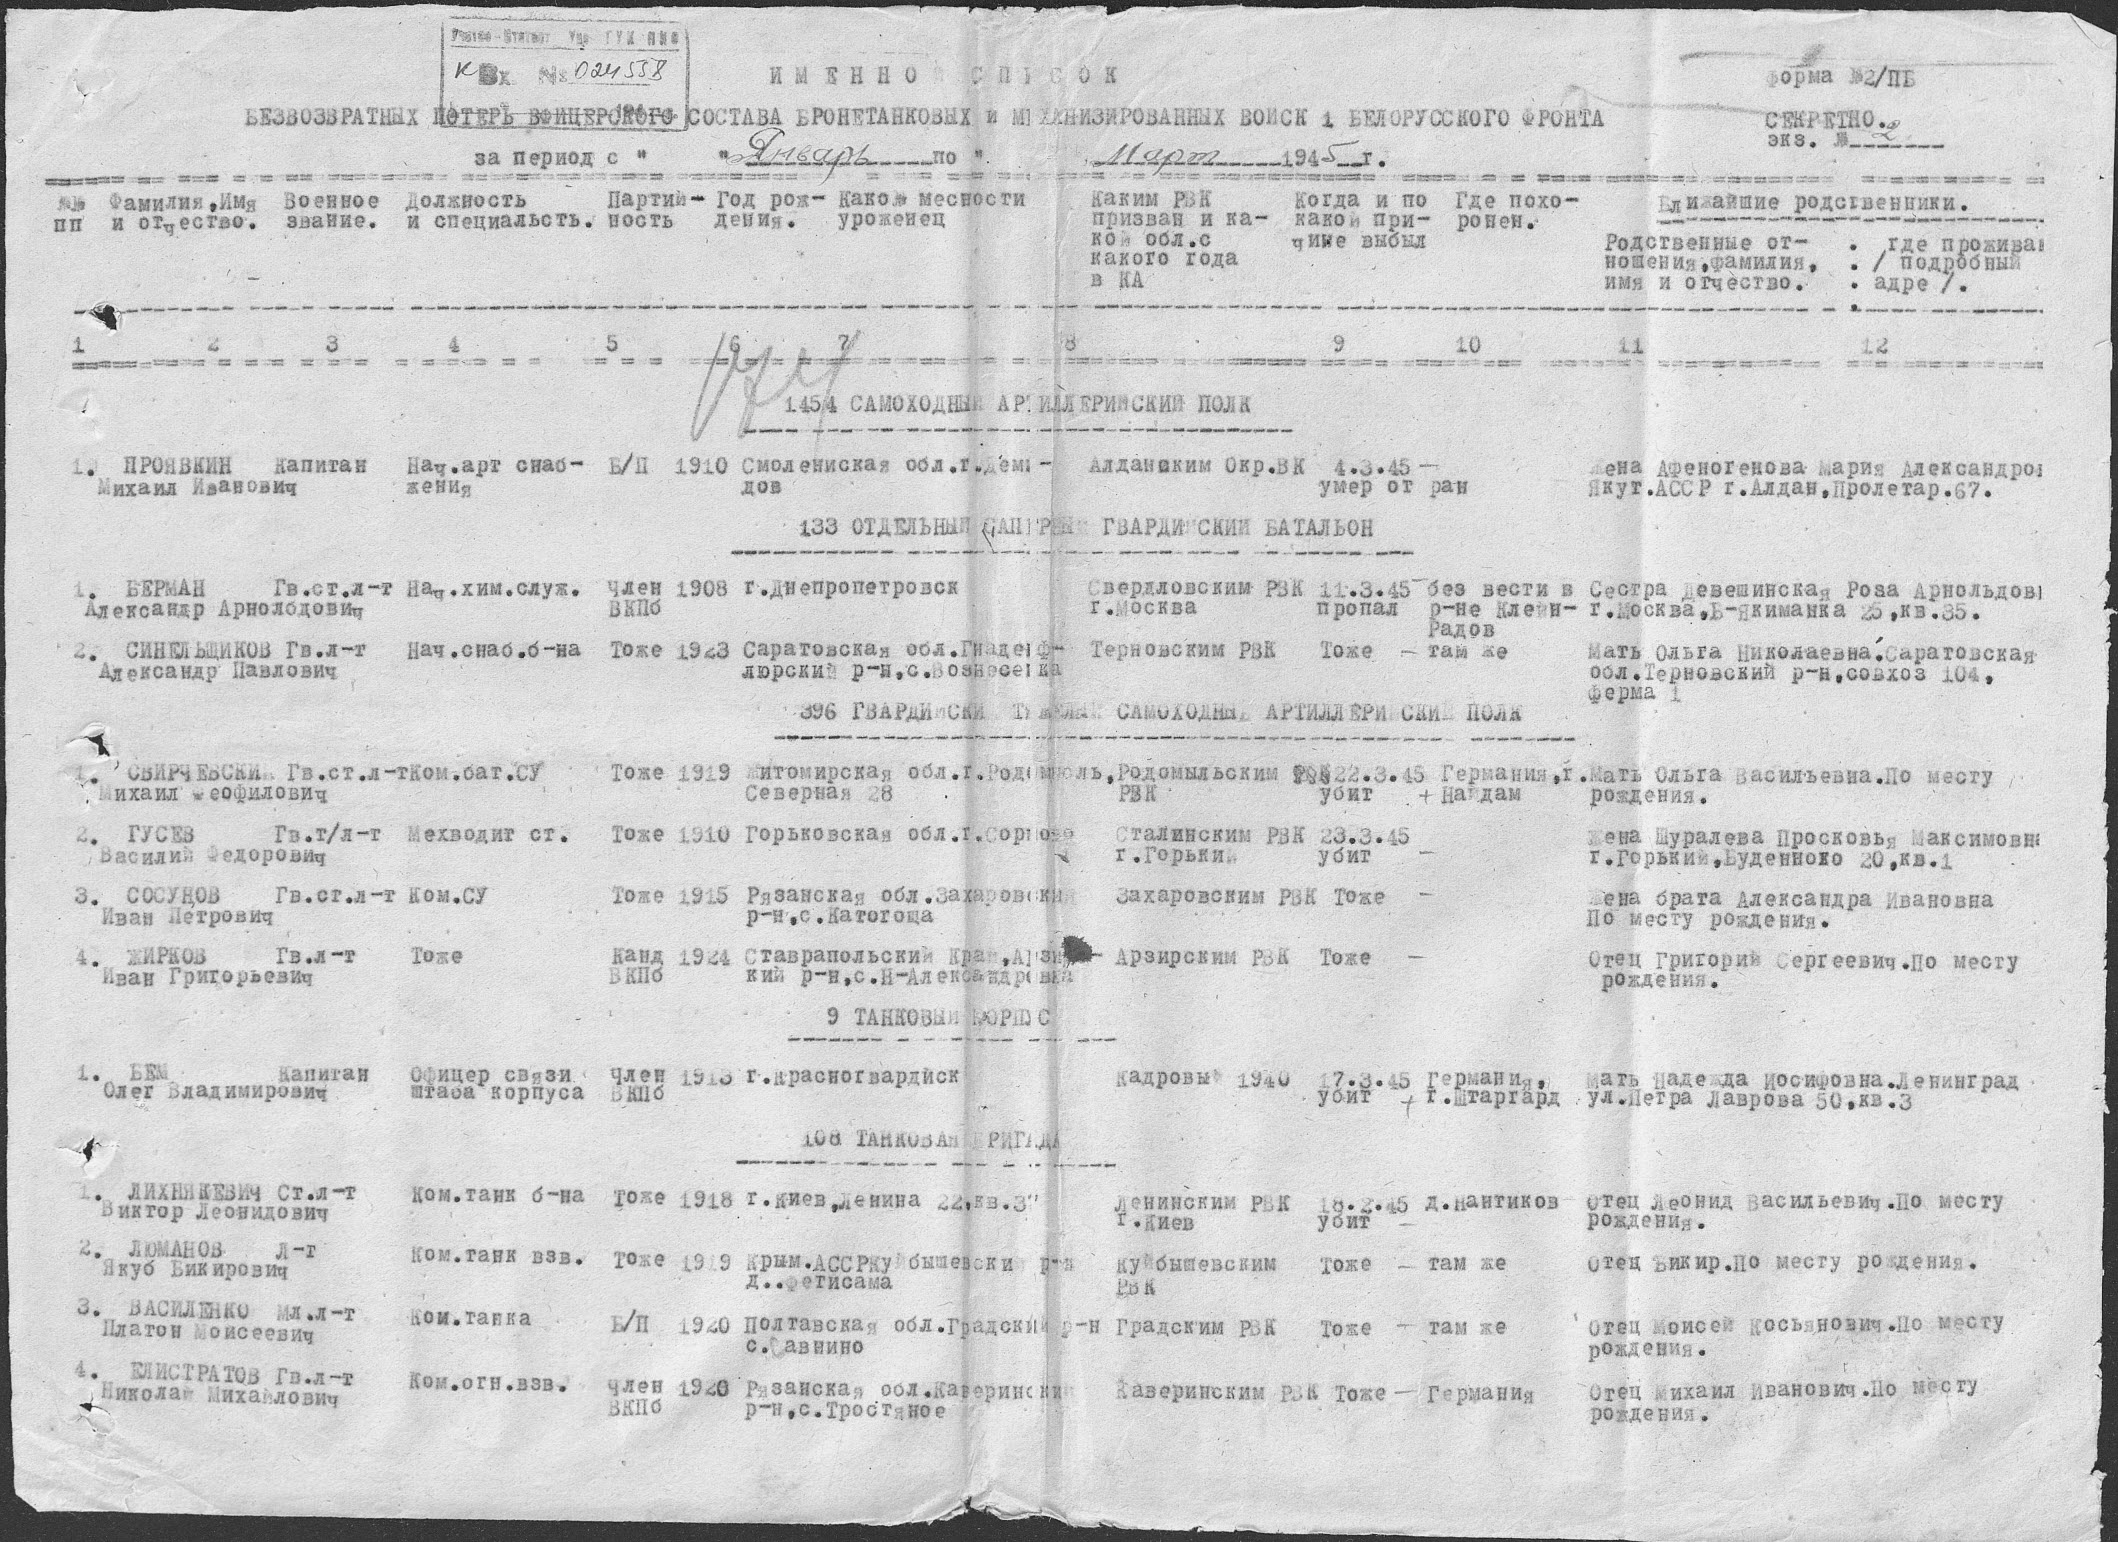 К Вх № 024558
ИМЕННОЙ СПИСОК
форма №2/ПБ
БЕЗВОЗВРАТНЫХ ПОТЕРЬ ОФИЦЕРСКОГО СОСТАВА БРОНЕТАНКОВЫХ и МЕХАНИЗИРОВАННЫХ ВОИСК 1 БЕЛОРУССКОГО ФРОНТА
СЕКРЕТНО.
экз. № 2
за период с " " Январь по " Март 1945 г.
№№ Фамилия,Имя Военное Должность Партий- Год рож- Какой месности Каким РВК Когда и по Где похо- Ближайшие родственники.
пп и отчество. звание. и специальсть. ность дения. уроженец призван и ка- какой при- ронен.
кой обл.с чине выбыл Родственные от- . где прожива
какого года ношения,фамилия, . / подробный
в КА имя и отчество. . адре /.
1 2 3 4 5 6 7 8 9 10 11 12
1454 САМОХОДНЫЙ АРТИЛЛЕРИЙСКИЙ ПОЛК
1. ПРОЯВКИН Капитан Нач.арт снаб- Б/П 1910 Смолениская обл.г.Деми- Алданским Окр.ВК 4.3.45 — Жена Афеногенова Мария Александров
Михаил Иванович жения дов умер от ран Якут.АССР г.Алдан,Пролетар.67.
133 ОТДЕЛЬНЫЙ САПЕРНЫЙ ГВАРДИЙСКИЙ БАТАЛЬОН
1. БЕРМАН Гв.ст.л-т Нач.хим.служ. Член 1908 г.Днепропетровск Свердловским РВК 11.3.45 без вести в Сестра Девешинская Роза Арнольдов
Александр Арнолбдович ВКПб г.Москва пропал р-не Клейн- г.Москва,Б-Якиманка 25,кв.35.
Радов
2. СИНЕЛЬЩИКОВ Гв.л-т Нач.снаб.б-на Тоже 1923 Саратовская обл.Гнаденф- Терновским РВК Тоже — там же Мать Ольга Николаевна.Саратовская
Александр Павлович люрский р-н,с.Вознесенка обл.Терновский р-н,совхоз 104,
ферма 1
396 ГВАРДИЙСКИЙ ТЯЖЕЛЫЙ САМОХОДНЫЙ АРТИЛЛЕРИЙСКИЙ ПОЛК
1. СВИРЧЕВСКИЙ Гв.ст.л-т Ком.бат.СУ Тоже 1919 Житомирская обл.г.Родомысль, Родомыльским 22.3.45 Германия,г. Мать Ольга Васильевна.По месту
Михаил Феофилович Северная 28 РВК убит + Найдам рождения.
2. ГУСЕВ Гв.т/л-т Мехводит ст. Тоже 1910 Горьковская обл.г.Сормово Сталинским РВК 23.3.45 Жена Шуралева Просковья Максимовна
Василий Федорович г.Горький убит — г.Горький,Буденного 20,кв.1
3. СОСУНОВ Гв.ст.л-т Ком.СУ Тоже 1915 Рязанская обл.Захаровский Захаровским РВК Тоже — Жена брата Александра Ивановна
Иван Петрович р-н,с.Катогоща По месту рождения.
4. ЖИРКОВ Гв.л-т Тоже Канд 1924 Ставрапольский Край,Арзи- Арзирским РВК Тоже — Отец Григорий Сергеевич.По месту
Иван Григорьевич ВКПб кий р-н,с.Н-Александровка рождения.
9 ТАНКОВЫЙ КОРПУС
1. БЕМ Капитан Офицер связи Член 1913 г.Красногвардйск Кадровый 1940 17.3.45 Германия, Мать Надежда Иосифовна.Ленинград
Олег Владимирович штаба корпуса ВКПб убит + г.Штаргард ул.Петра Лаврова 50,кв.3
108 ТАНКОВАЯ БРИГАДА
1. ЛИХНЯКЕВИЧ Ст.л-т Ком.танк б-на Тоже 1918 г.Киев,Ленина 22,кв.3 Ленинским РВК 18.2.45 д.Нантиков Отец Леонид Васильевич.По месту
Виктор Леонидович г.Киев убит — рождения.
2. ЛЮМАНОВ Л-т Ком.танк взв. Тоже 1919 Крым.АССРКуйбышевский р-н Куйбышевским Тоже — там же Отец Бикир.По месту рождения.
Якуб Бикирович д..Фетисама РВК
3. ВАСИЛЕНКО Мл.л-т Ком.танка Б/П 1920 Полтавская обл.Градский р-н Градским РВК Тоже — там же Отец Моисей Косьянович.По месту
Платон Моисеевич с.Савнино рождения.
4. ЕЛИСТРАТОВ Гв.л-т Ком.огн.взв. Член 1920 Рязанская обл.Каверинский Каверинским РВК Тоже — Германия Отец Михаил Иванович.По месту
Николай Михайлович ВКПб р-н,с.Тростяное рождения.